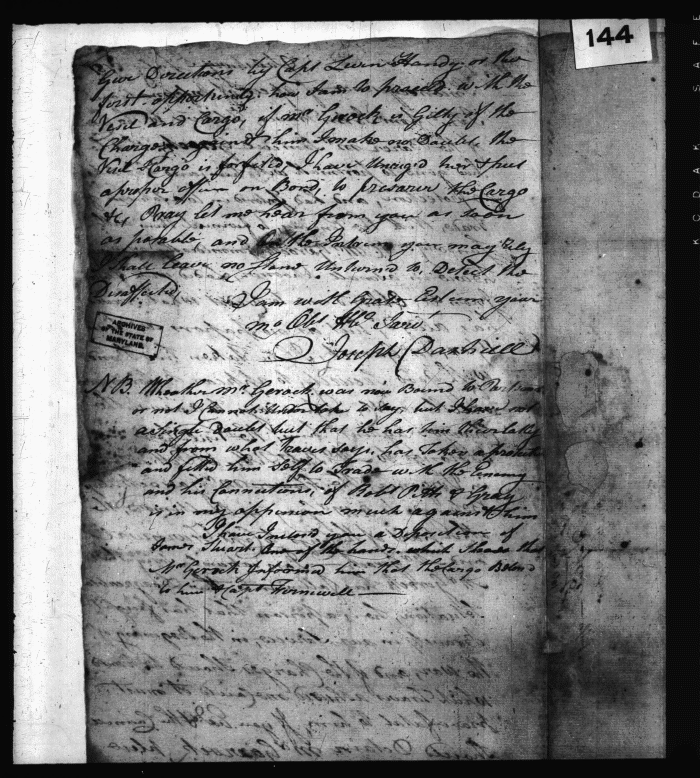 144
Give Directions by Capt Levin Handy or the
first opportunity how I am to proceed with the
Vesil and Cargo, if Mr Gerock is Gilty of the
Charge against him I make no Doubt, the
Vesil & Cargo is forfited, I have and put
a proper officer on Bord, to preserve the Cargo
&c Pray let me hear from you as soon
as posable, and in the Intrim you may rely
I shall leave no Stone Unturnd to Detect the
Disaffected,
I am with Great Esteem your
Mo Obt Hble Servt
Joseph Dashiell
ARCHIVES
OF THE STATE OF
MARYLAND
NB. Wheather Mr Gerock was now Bound to
or not I Cannot Undertake to say, but I have not
a Single Doubt but that he has bin
and from what Traves says, has taken a
and fitted him Self to Trade with the Enemy
and his Connections, of Robt Pitts & Gray
is in my oppinion much against him
I have Inclosd you a Deposition of
James Stuart One of the hands, which Shews that
Mr Gerock Informed him that the Cargo Belond
to him & Capt